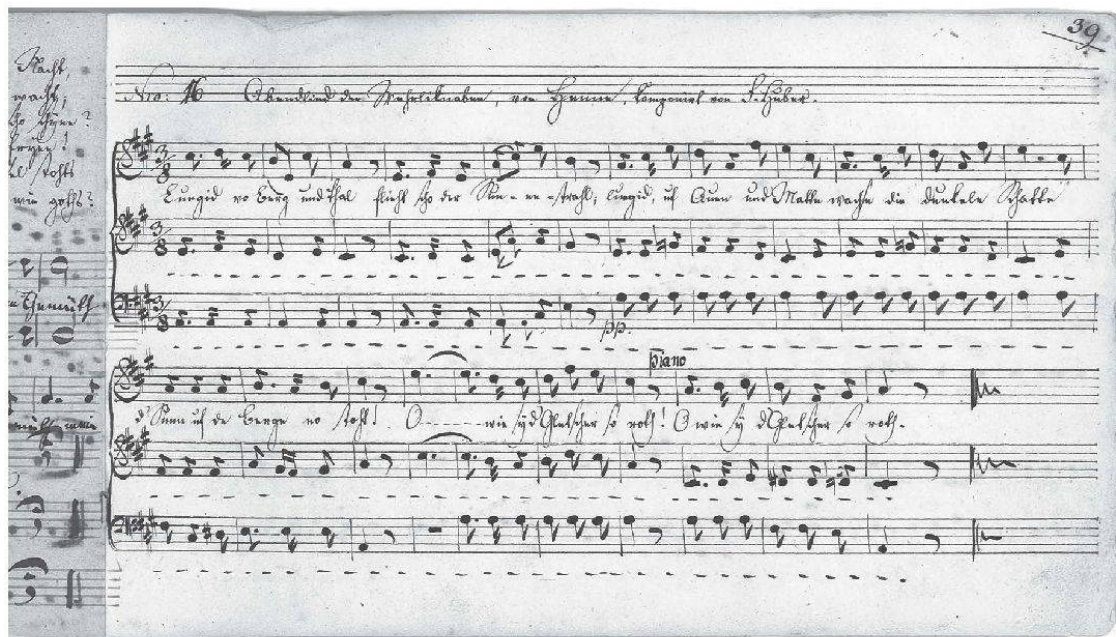 39
Nro: 16 Abendlied der Wehrliknaben, von Hanne, komponirt von F. Huber.
Nacht,
wacht,
Lueged vo Berg und Thal flieht scho der Sun - ne - strahl, lueged, uf Auen und Matte wachse die dunkele Schatte
wie gohts?
pp.
Piano
d'Sunn uf de Berge no stoht! O wie syd Gletscher so roth! O wie sy d'Gletscher so roth.